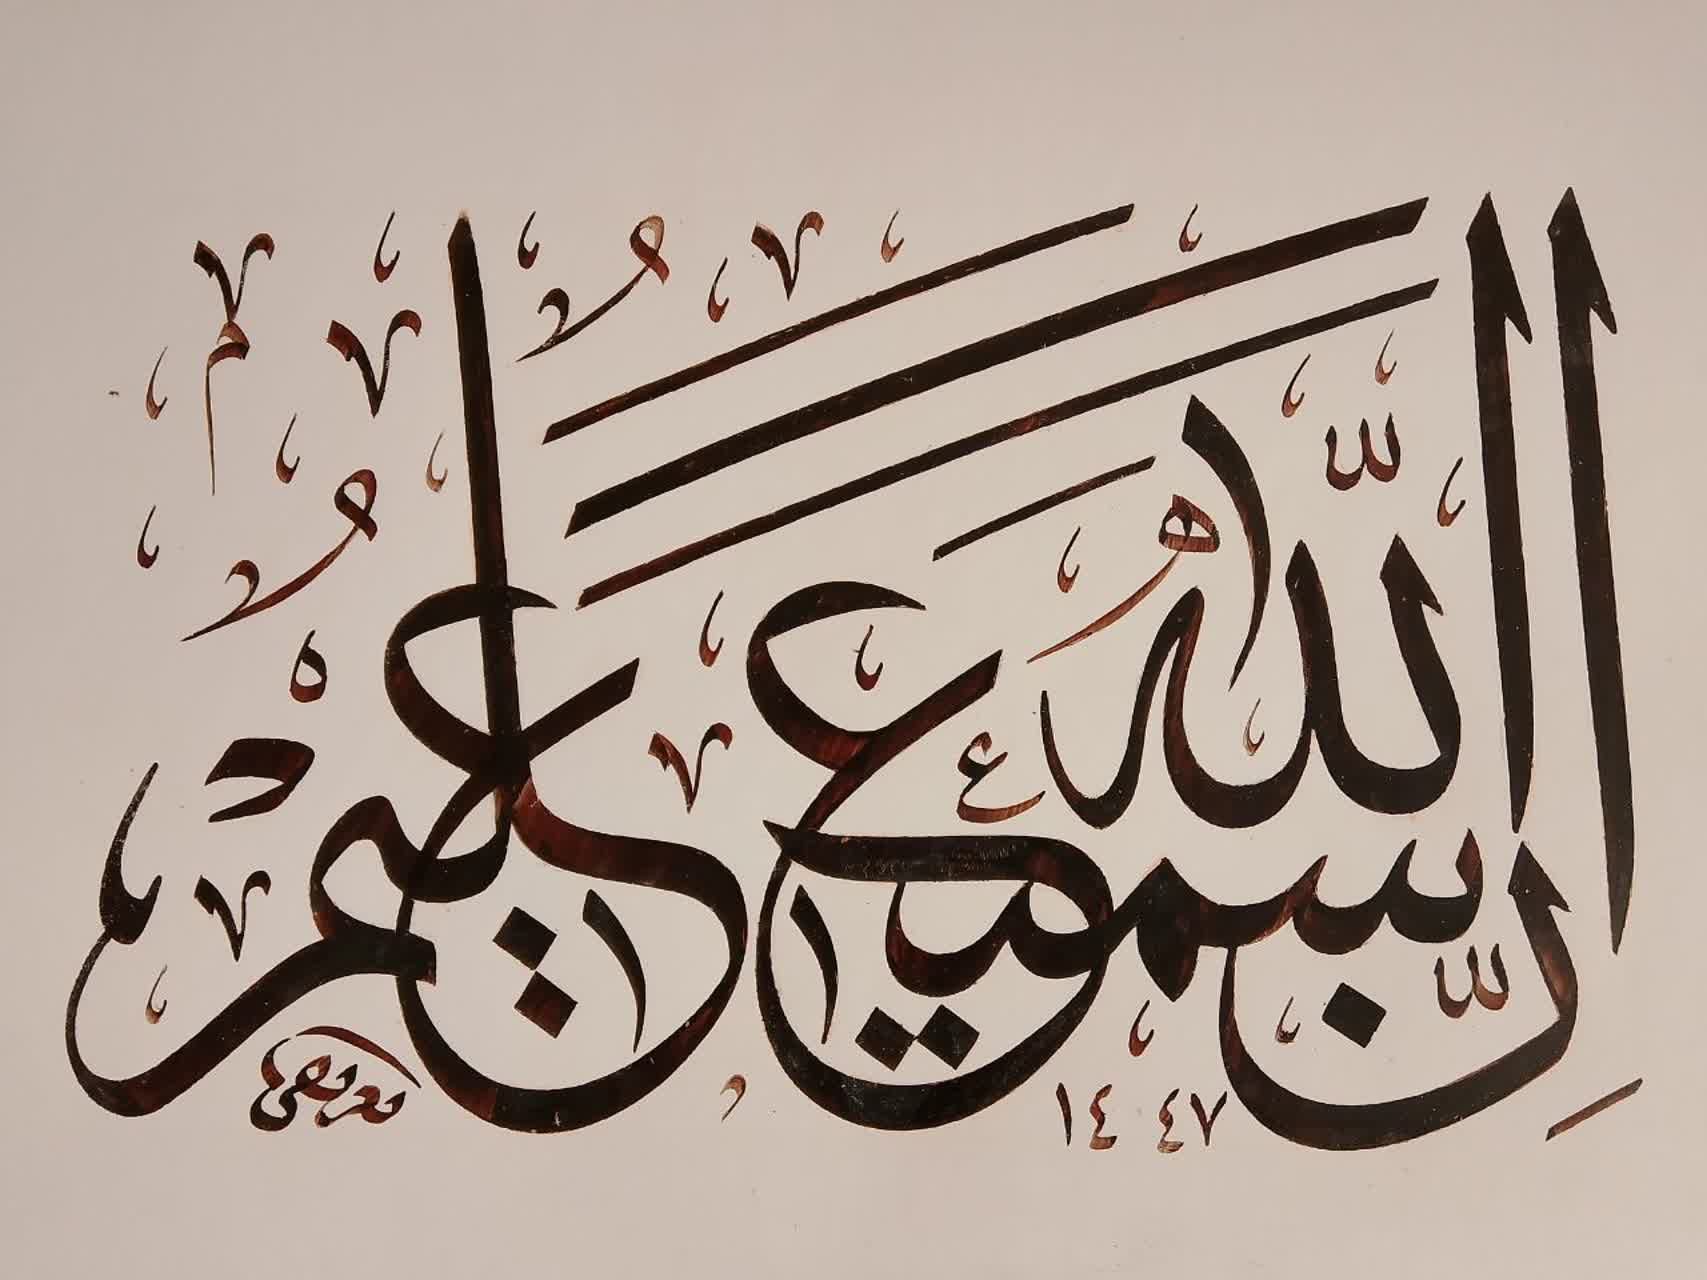 إِنَّ اللّٰهَ سَمِيعٌ عَلِيمٌ
١٤٤٧